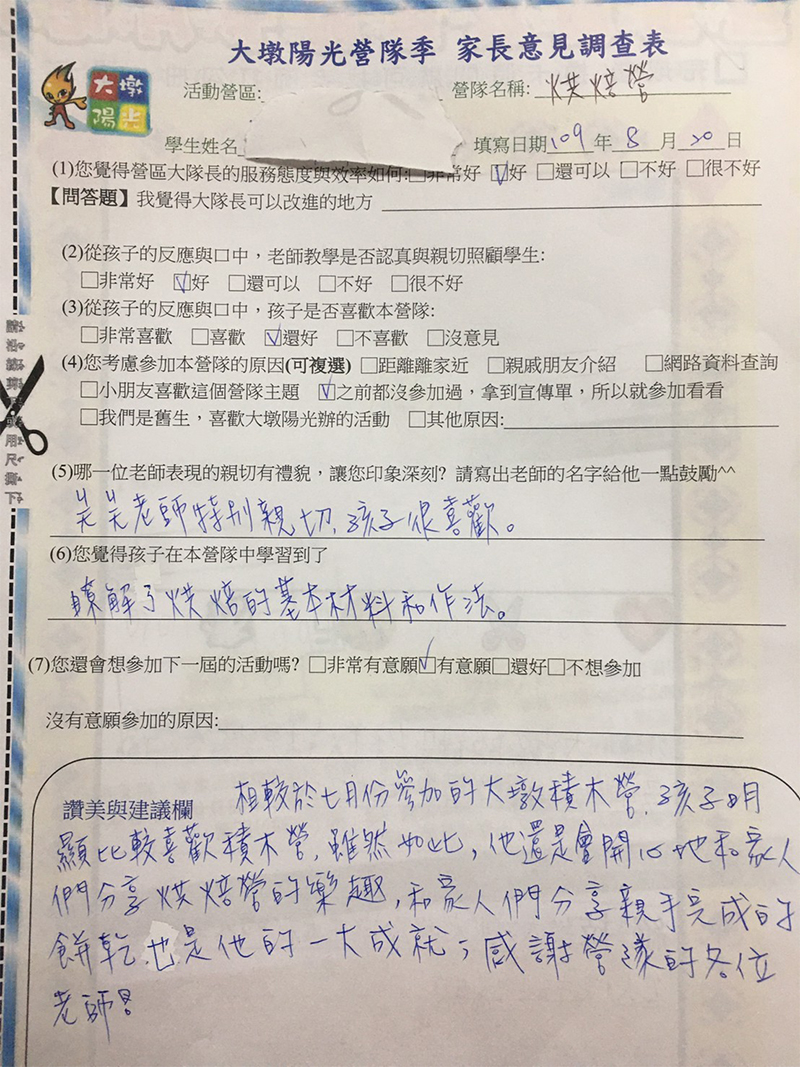 大墩陽光營隊季 家長意見調查表
大墩
陽光
活動營區: 營隊名稱: 烘焙營
學生姓名 填寫日期 109 年 8 月 20 日
(1)您覺得營區大隊長的服務態度與效率如何:□非常好 ☑好 □還可以 □不好 □很不好
【問答題】我覺得大隊長可以改進的地方
(2)從孩子的反應與口中，老師教學是否認真與親切照顧學生:
□非常好 ☑好 □還可以 □不好 □很不好
(3)從孩子的反應與口中，孩子是否喜歡本營隊:
□非常喜歡 □喜歡 ☑還好 □不喜歡 □沒意見
(4)您考慮參加本營隊的原因(可複選) □距離離家近 □親戚朋友介紹 □網路資料查詢
□小朋友喜歡這個營隊主題 ☑之前都沒參加過，拿到宣傳單，所以就參加看看
□我們是舊生，喜歡大墩陽光辦的活動 □其他原因:
(5)哪一位老師表現的親切有禮貌，讓您印象深刻? 請寫出老師的名字給他一點鼓勵^^
吳吳老師特別親切,孩子很喜歡。
(6)您覺得孩子在本營隊中學習到了
瞭解了烘焙的基本材料和作法。
(7)您還會想參加下一屆的活動嗎? □非常有意願☑有意願□還好□不想參加
沒有意願參加的原因:
讚美與建議欄 相較於七月份參加的大墩積木營,孩子明
顯比較喜歡積木營,雖然如此,他還是會開心地和家人
們分享烘焙營的樂趣,和家人們分享親手完成的
餅乾,也是他的一大成就,感謝營隊的各位
老師!